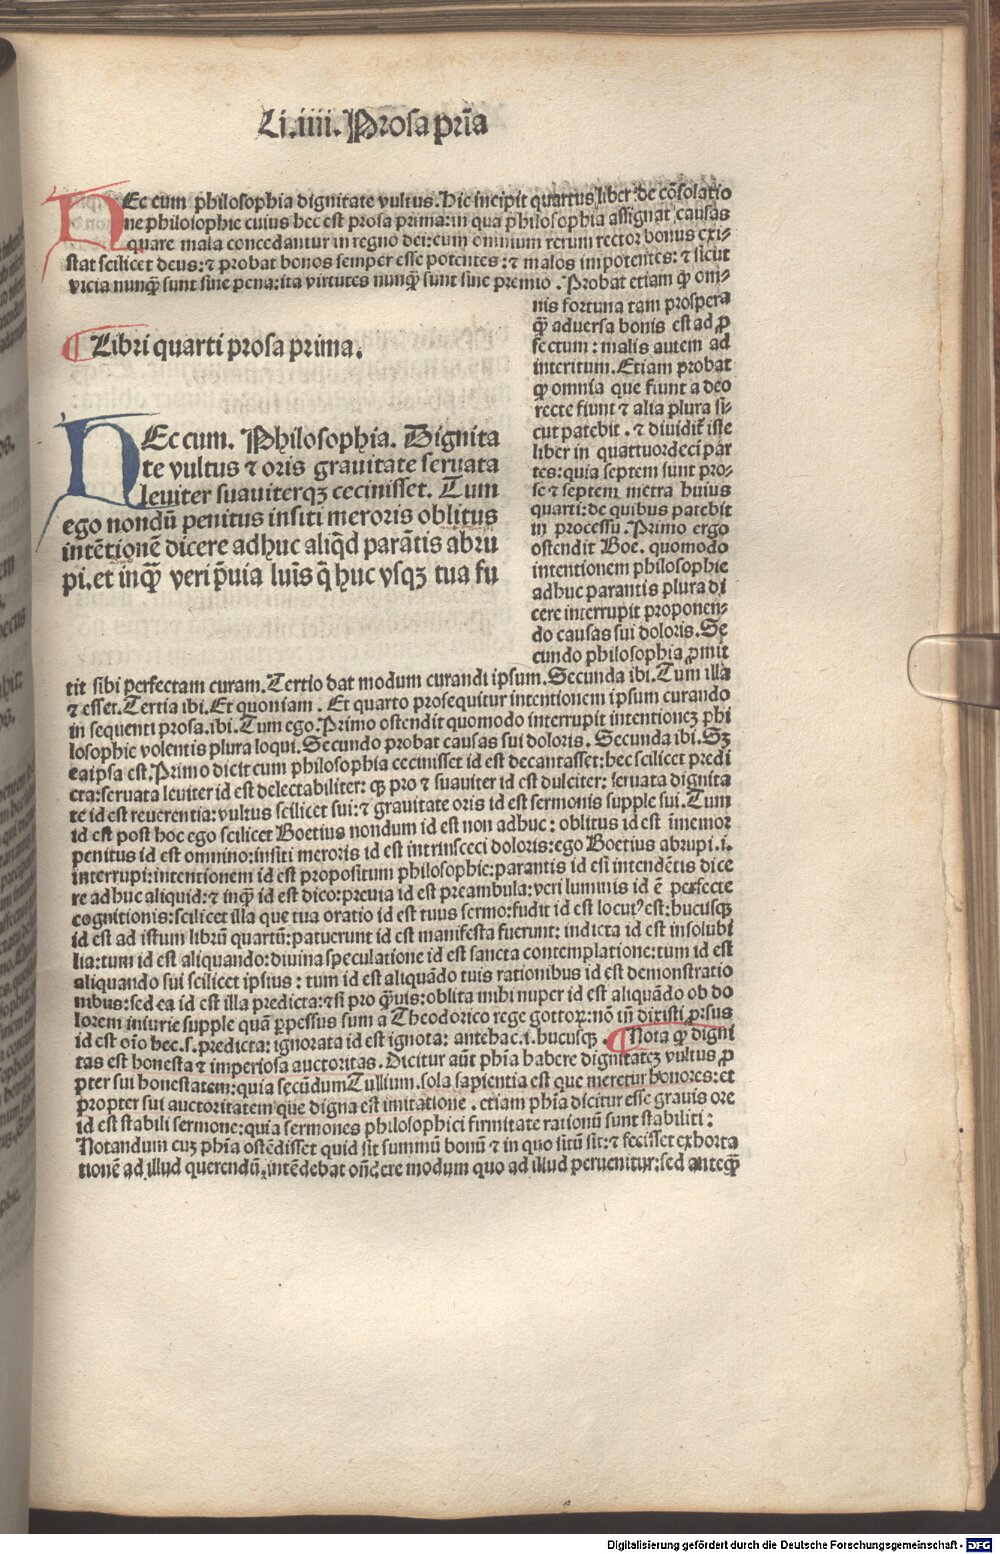 Li.iiii. Prosa prīa
HEc cum philosophia dignitate vultus. Hic incipit quartus liber de cōsolatio
ne philosophie cuius hec est prosa prima: in qua philosophia assignat causas
quare mala concedantur in regno dei: cum omnium rerum rector bonus exi-
stat scilicet deus: ⁊ probat bonos semper esse potentes: ⁊ malos impotentes: ⁊ sicut
vicia nunq̄ sunt sine pena: ita virtutes nunq̄ sunt sine premio. Probat etiam ꝙ om-
nis fortuna tam prospera
q̄ aduersa bonis est ad ꝓ
fectum: malis autem ad
interitum. Etiam probat
ꝙ omnia que fiunt a deo
recte fiunt ⁊ alia plura si-
cut patebit. ⁊ diuidit̄ iste
liber in quattuordeci par
tes: quia septem sunt pro-
se ⁊ septem metra huius
quarti: de quibus patebit
in processu. Primo ergo
ostendit Boe. quomodo
intentionem philosophie
adhuc parantis plura di
cere interrupit proponen-
do causas sui doloris. Se
cundo philosophia ꝓmit
¶ Libri quarti prosa prima.
HEc cum. Philosophia. Dignita
te vultus ⁊ oris grauitate seruata
leuiter suauiterqꝫ cecinisset. Tum
ego nondū penitus insiti meroris oblitus
intētionē dicere adhuc aliq̄d parātis abru
pi. et inq̄ veri p̄uia luīs q̄ huc vsqꝫ tua fu
tit sibi perfectam curam. Tertio dat modum curandi ipsum. Secunda ibi. Tum illa
⁊ esset. Tertia ibi. Et quoniam. Et quarto prosequitur intentionem ipsum curando
in sequenti prosa. ibi. Tum ego. Primo ostendit quomodo interrupit intentioneꝫ phi
losophie volentis plura loqui. Secundo probat causas sui doloris. Secunda ibi. Sꝫ
ea ipsa est. Primo dicit cum philosophia cecinisset id est decantasset: hec scilicet predi
cta: seruata leuiter id est delectabiliter: ꝙ pro ⁊ suauiter id est dulciter: seruata dignita
te id est reuerentia: vultus scilicet sui: ⁊ grauitate oris id est sermonis supple sui. Tum
id est post hoc ego scilicet Boetius nondum id est non adhuc: oblitus id est īmemor
penitus id est omnino: insiti meroris id est intrinseci doloris: ego Boetius abrupi .i.
interrupi: intentionem id est propositum philosophie: parantis id est intendētis dice
re adhuc aliquid: ⁊ inq̄ id est dico: preuia id est preambula: veri luminis id ē perfecte
cognitionis: scilicet illa que tua oratio id est tuus sermo: fudit id est locutꝰ est: hucusqꝫ
id est ad istum librū quartū: patuerunt id est manifesta fuerunt: indicta id est insolubi
lia: tum id est aliquando: diuina speculatione id est sancta contemplatione: tum id est
aliquando sui scilicet ipsius: tum id est aliquādo tuis rationibus id est demonstratio
nibus: sed ea id est illa predicta: ⁊ si pro q̄uis: oblita mihi nuper id est aliquādo ob do
lorem iniurie supple quā ꝑpessus sum a Theodorico rege gottoꝝ: nō tn̄ dixisti ꝓrsus
id est oīo hec .s. predicta: ignorata id est ignota: antehac .i. hucusqꝫ. ¶ Nota ꝙ digni
tas est honesta ⁊ imperiosa auctoritas. Dicitur aūt phīa habere dignitateꝫ vultus ꝓ
pter sui honestatem: quia secūdum Tullium. sola sapientia est que meretur honores: et
propter sui auctoritatem que digna est imitatione. etiam phīa dicitur esse grauis ore
id est stabili sermone: quia sermones philosophici firmitate rationū sunt stabiliti:
Notandum cuꝫ phīa ostēdisset quid sit summū bonū ⁊ in quo sitū sit: ⁊ fecisset exhorta
tionē ad illud querendū, intēdebat on̄dere modum quo ad illud peruenitur: sed anteq̄
Digitalisierung gefördert durch die Deutsche Forschungsgemeinschaft - DFG